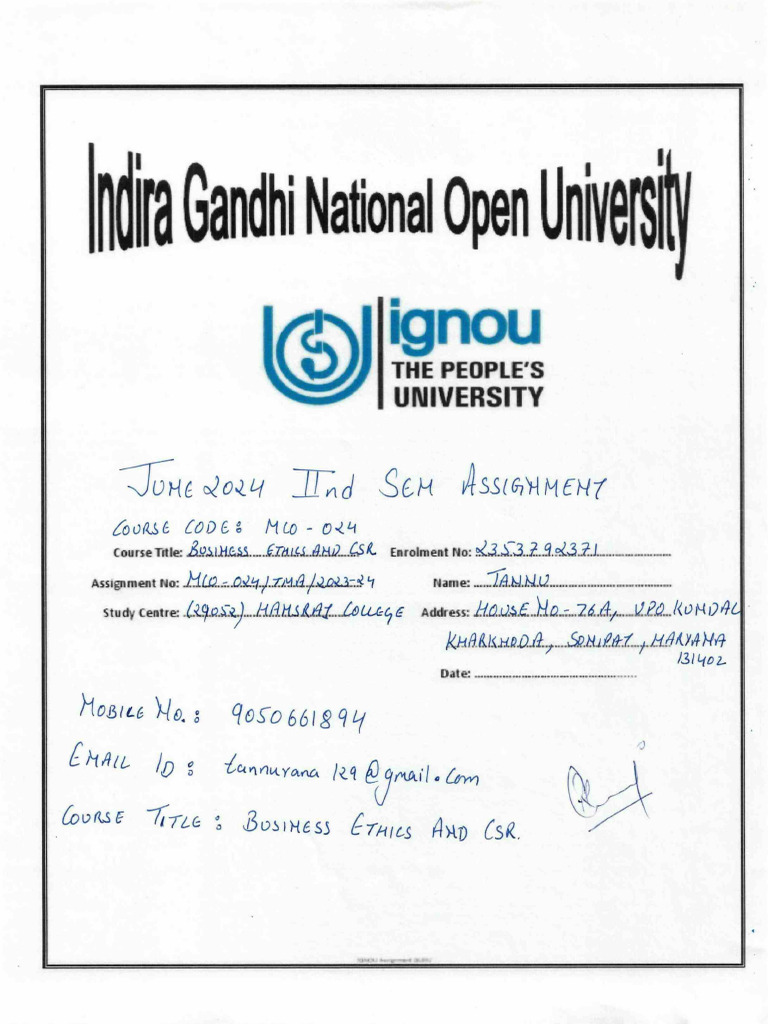 Indira Gandhi National Open University
ignou
THE PEOPLE'S
UNIVERSITY
JUNE 2024 IInd SEM ASSIGNMENT
COURSE CODE: MCO - 024
Course Title: BUSINESS ETHICS AND CSR Enrolment No: 2353792371
Assignment No: MCO - 024/TMA/2023-24 Name: TANNU
Study Centre: (29052) HANSRAJ COLLEGE Address: HOUSE NO - 76A, VPO KUNDAL
KHARKHODA, SONIPAT, HARYANA
131402
Date:
MOBILE NO.: 9050661894
EMAIL ID: tannurana129@gmail.com
COURSE TITLE: BUSINESS ETHICS AND CSR.
IGNOU Assignment GURU